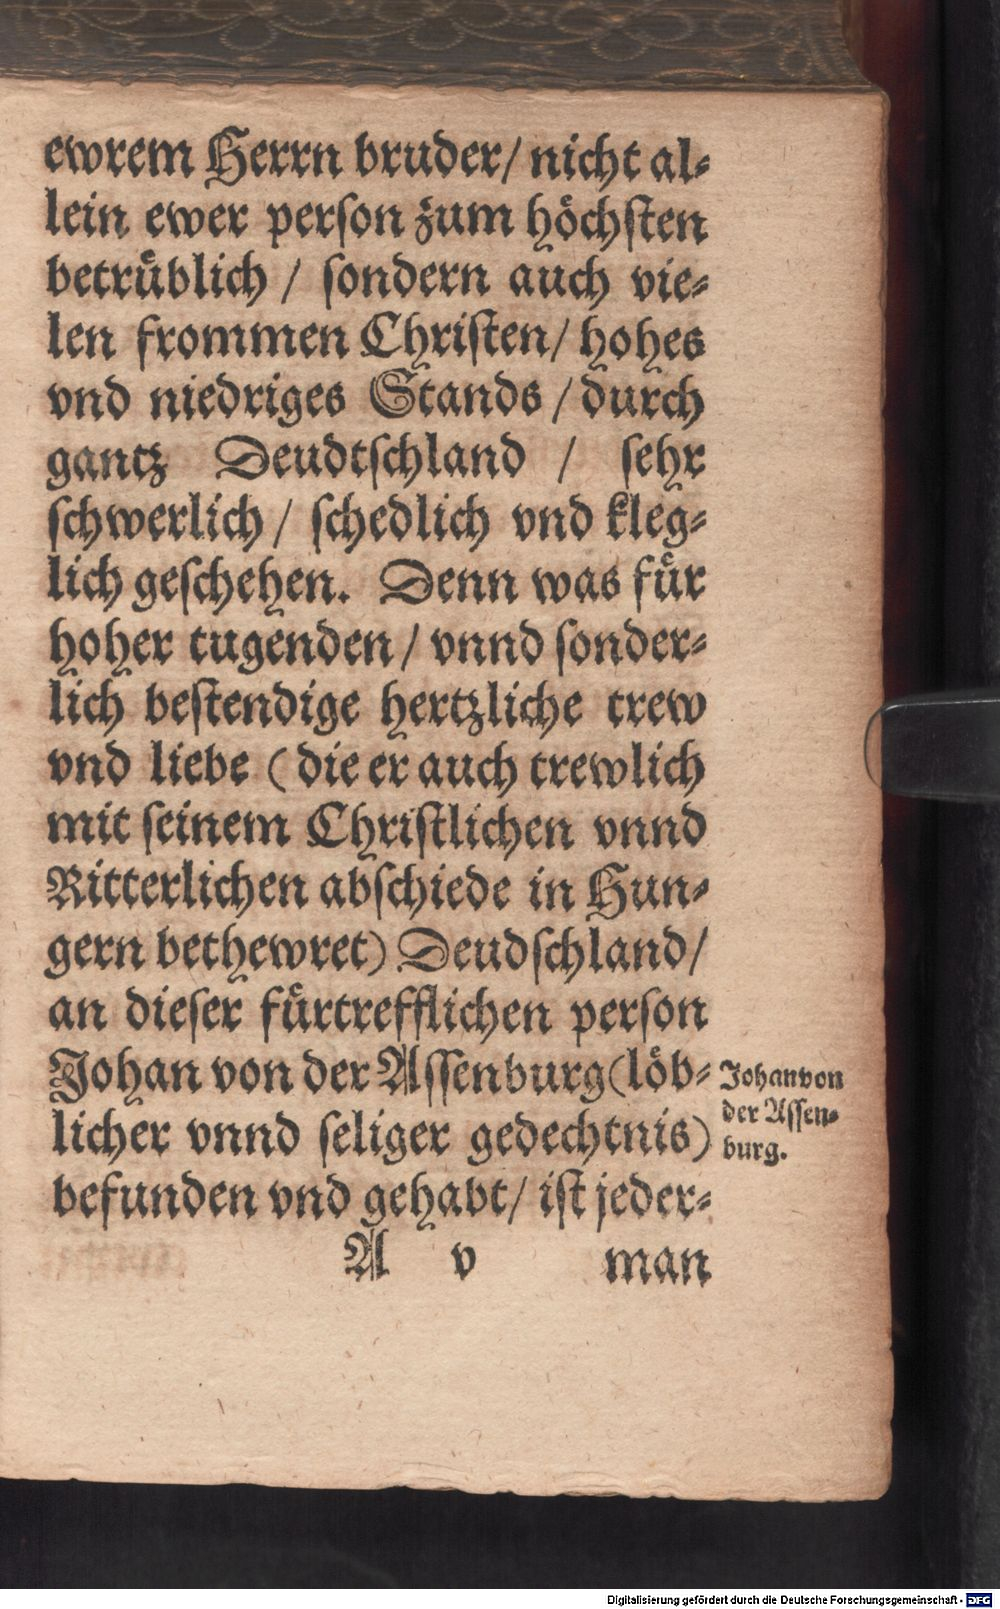 ewrem Herrn bruder/ nicht al⸗
lein ewer perſon zum höchſten
betrüblich / ſondern auch vie⸗
len frommen Chriſten/ hohes
vnd niedriges Stands / durch
gantz Deudtſchland / ſehr
ſchwerlich/ ſchedlich vnd kleg⸗
lich geſchehen. Denn was für
hoher tugenden / vnnd ſonder⸗
lich beſtendige hertzliche trew
vnd liebe ( die er auch trewlich
mit ſeinem Chriſtlichen vnnd
Ritterlichen abſchiede in Hun⸗
gern bethewret) Deudſchland/
an dieſer fürtrefflichen perſon
Johan von der Aſſenburg (löb⸗
licher vnnd ſeliger gedechtnis)
befunden vnd gehabt/ iſt jeder⸗
A v man
Johan von
der Aſſen⸗
burg.
Digitalisierung gefördert durch die Deutsche Forschungsgemeinschaft - DFG